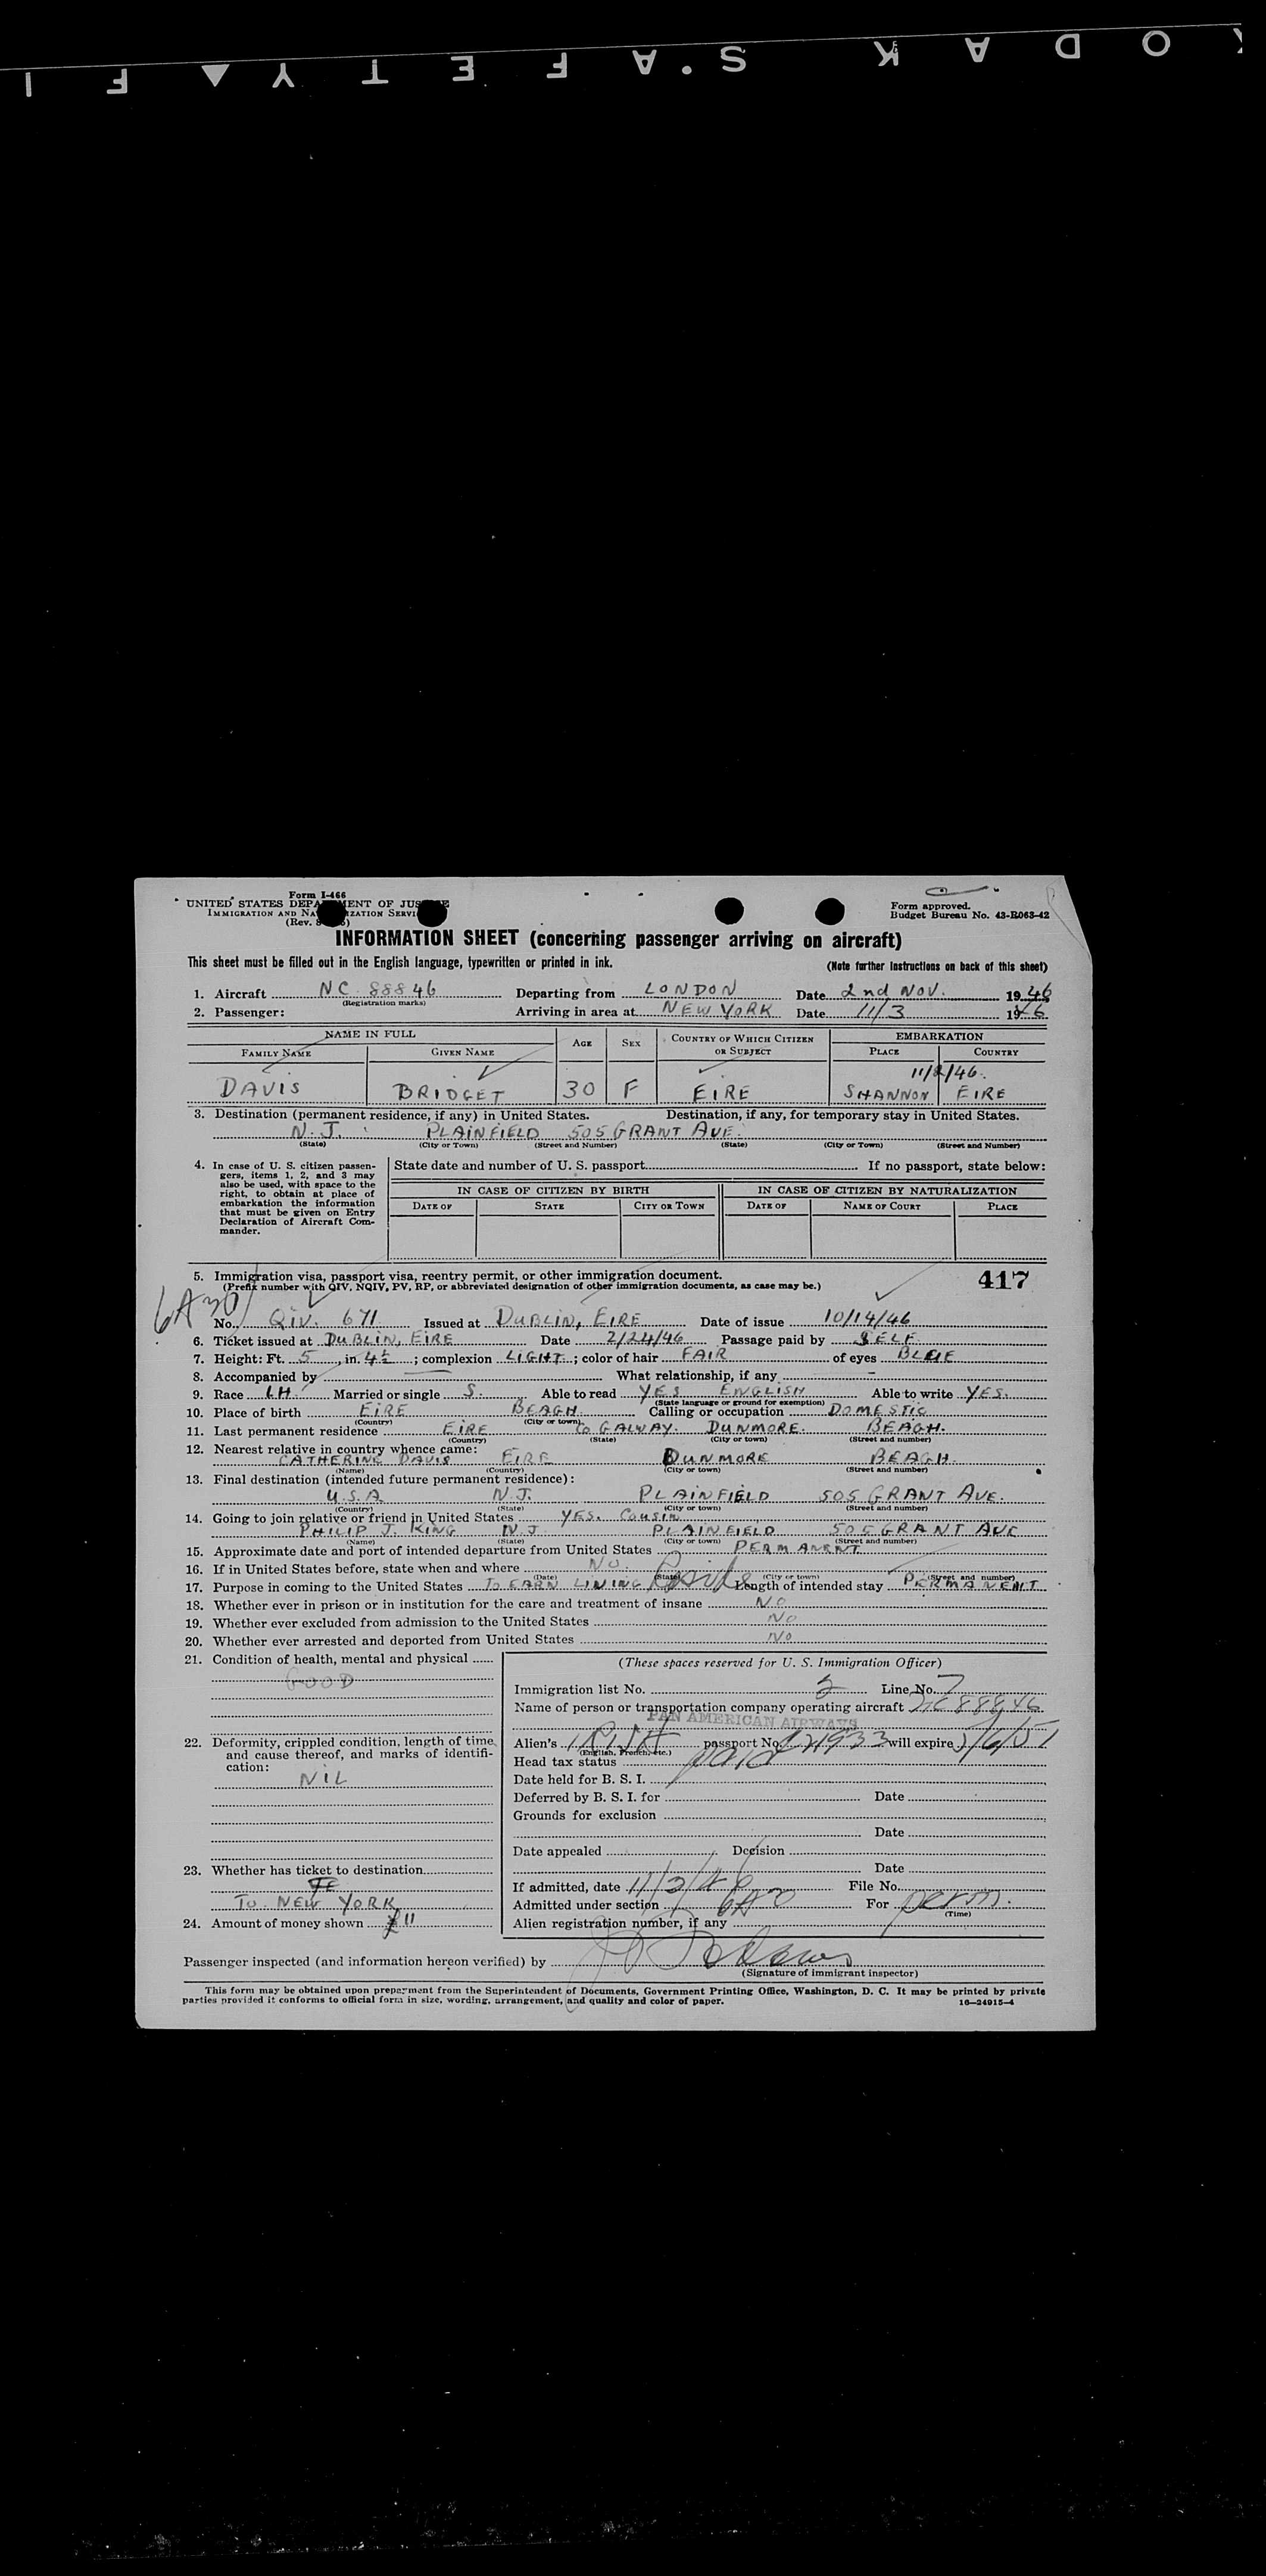 KODAK S.AFETY▼FI
Form I-466
UNITED STATES DEPARTMENT OF JUSTICE
IMMIGRATION AND NATURALIZATION SERVICE
(Rev.
Form approved.
Budget Bureau No. 43-R063-42
INFORMATION SHEET (concerning passenger arriving on aircraft)
This sheet must be filled out in the English language, typewritten or printed in ink.
(Note further instructions on back of this sheet)
1. Aircraft NC 88846 Departing from LONDON Date 2nd NOV. 1946
(Registration marks)
2. Passenger: Arriving in area at NEW YORK Date 11/3 1946
NAME IN FULL AGE SEX COUNTRY OF WHICH CITIZEN OR SUBJECT EMBARKATION
FAMILY NAME GIVEN NAME PLACE COUNTRY
11/2/46.
DAVIS BRIDGET 30 F EIRE SHANNON EIRE
3. Destination (permanent residence, if any) in United States. Destination, if any, for temporary stay in United States.
N.J. PLAINFIELD 505 GRANT AVE.
(State) (City or Town) (Street and Number) (State) (City or Town) (Street and Number)
4. In case of U. S. citizen passengers, items 1, 2, and 3 may also be used, with space to the right, to obtain at place of embarkation the information that must be given on Entry Declaration of Aircraft Commander.
State date and number of U. S. passport If no passport, state below:
IN CASE OF CITIZEN BY BIRTH IN CASE OF CITIZEN BY NATURALIZATION
DATE OF STATE CITY OR TOWN DATE OF NAME OF COURT PLACE
5. Immigration visa, passport visa, reentry permit, or other immigration document.
(Prefix number with QIV, NQIV, PV, RP, or abbreviated designation of other immigration documents, as case may be.)
417
No. QIV. 671 Issued at DUBLIN, EIRE Date of issue 10/14/46
6. Ticket issued at DUBLIN, EIRE Date 2/24/46 Passage paid by SELF
7. Height: Ft. 5, in. 4½; complexion LIGHT; color of hair FAIR of eyes BLUE
8. Accompanied by — What relationship, if any —
9. Race Married or single S. Able to read YES ENGLISH Able to write YES.
(State language or ground for exemption)
10. Place of birth EIRE BEAGH. Calling or occupation DOMESTIC
(Country) (City or town)
11. Last permanent residence EIRE CO GALWAY. DUNMORE. BEAGH.
(Country) (State) (City or town) (Street and number)
12. Nearest relative in country whence came:
CATHERINE DAVIS EIRE DUNMORE BEAGH.
(Name) (Country) (City or town) (Street and number)
13. Final destination (intended future permanent residence):
U.S.A. N.J. PLAINFIELD 505 GRANT AVE.
(Country) (State) (City or town) (Street and number)
14. Going to join relative or friend in United States YES. COUSIN
PHILIP J. KING N.J. PLAINFIELD 505 GRANT AVE
(Name) (State) (City or town) (Street and number)
15. Approximate date and port of intended departure from United States PERMANENT
16. If in United States before, state when and where NO.
(Date) (State) (City or town) (Street and number)
17. Purpose in coming to the United States TO EARN LIVING Reside Length of intended stay PERMANENT
18. Whether ever in prison or in institution for the care and treatment of insane NO
19. Whether ever excluded from admission to the United States NO
20. Whether ever arrested and deported from United States NO
21. Condition of health, mental and physical
GOOD
22. Deformity, crippled condition, length of time and cause thereof, and marks of identification:
NIL
23. Whether has ticket to destination
TO NEW YORK
24. Amount of money shown £11
(These spaces reserved for U. S. Immigration Officer)
Immigration list No. 2 Line No. 7
Name of person or transportation company operating aircraft NC 88846
PAN AMERICAN AIRWAYS
Alien's Irish passport No. will expire
(English, French, etc.)
Head tax status paid
Date held for B. S. I.
Deferred by B. S. I. for Date
Grounds for exclusion
Date
Date appealed Decision
Date
If admitted, date 11/3/46 File No.
Admitted under section For perm.
(Time)
Alien registration number, if any
Passenger inspected (and information hereon verified) by
(Signature of immigrant inspector)
This form may be obtained upon prepayment from the Superintendent of Documents, Government Printing Office, Washington, D. C. It may be printed by private
parties provided it conforms to official form in size, wording, arrangement, and quality and color of paper. 16—24915-4